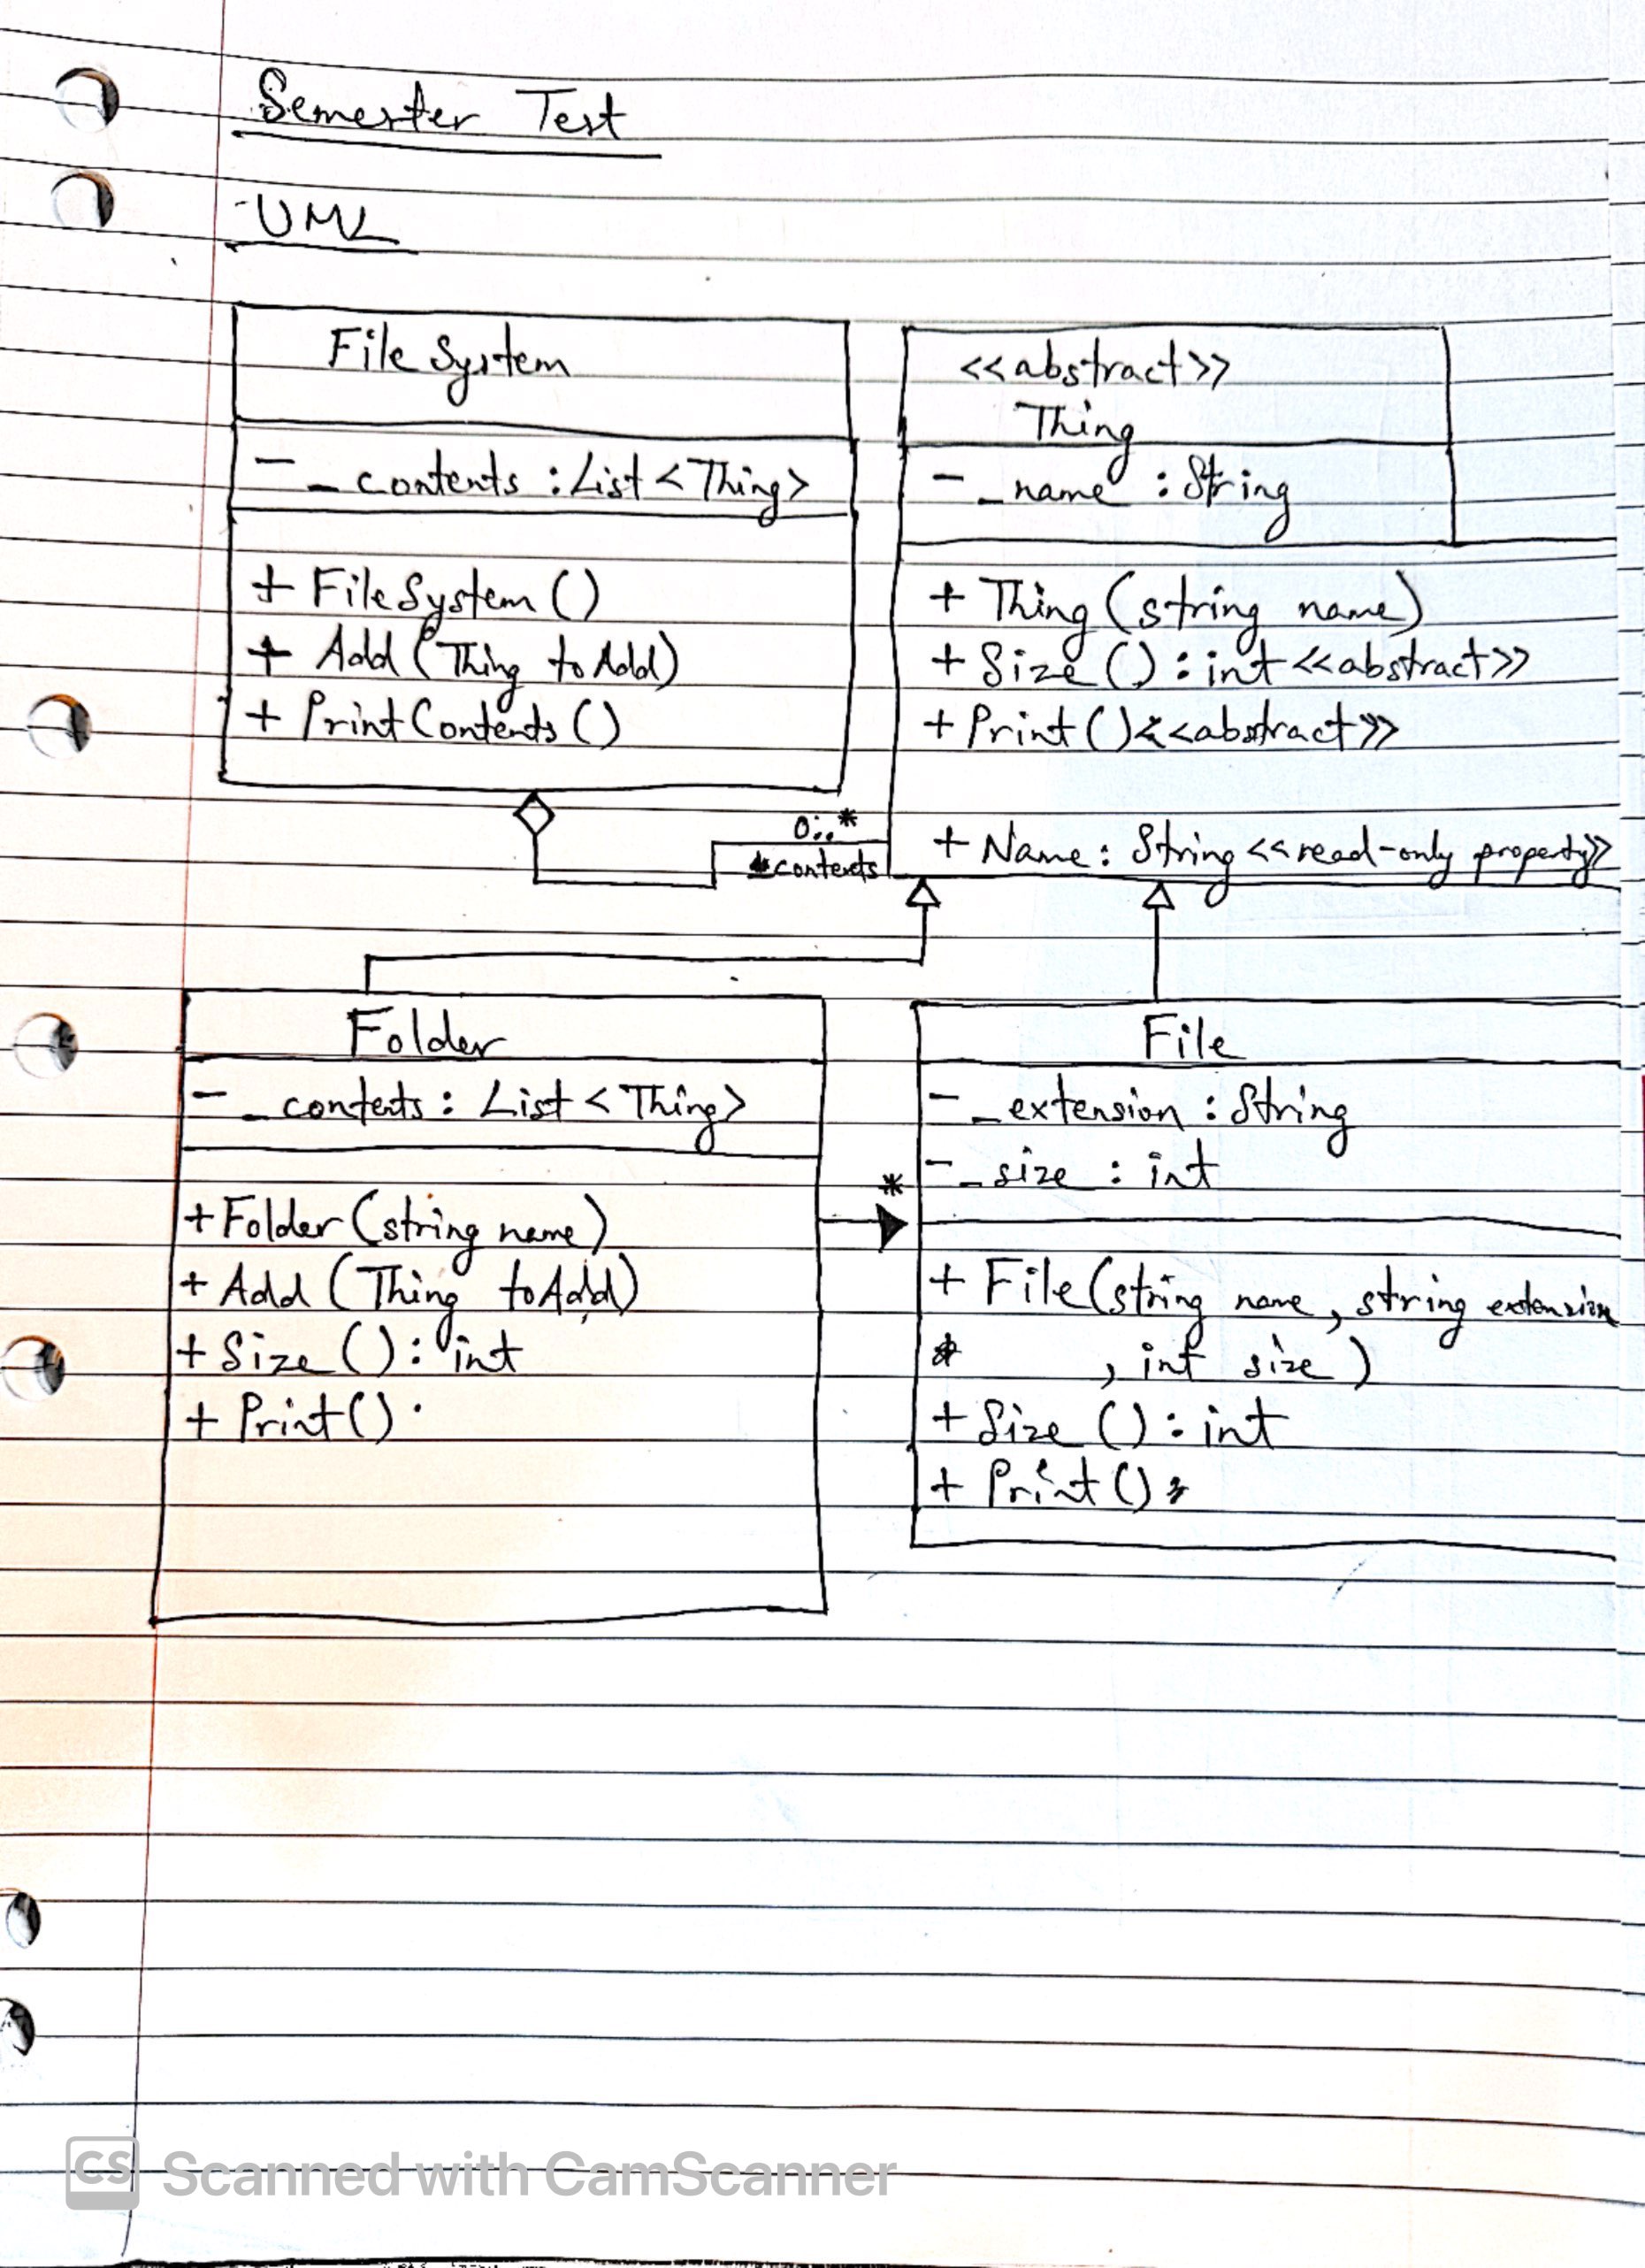 Semester Test
UML
File System
- _contents : List <Thing>
+ FileSystem ()
+ Add (Thing toAdd)
+ PrintContents ()
<<abstract>>
Thing
- _name : String
+ Thing (string name)
+ Size () : int <<abstract>>
+ Print () <<abstract>>
+ Name : String <<read-only property>>
0..*
contents
Folder
- _contents : List <Thing>
+ Folder (string name)
+ Add (Thing toAdd)
+ Size () : int
+ Print ()
*
File
- _extension : String
- _size : int
+ File (string name, string extension
, int size )
+ Size () : int
+ Print ()
CS Scanned with CamScanner